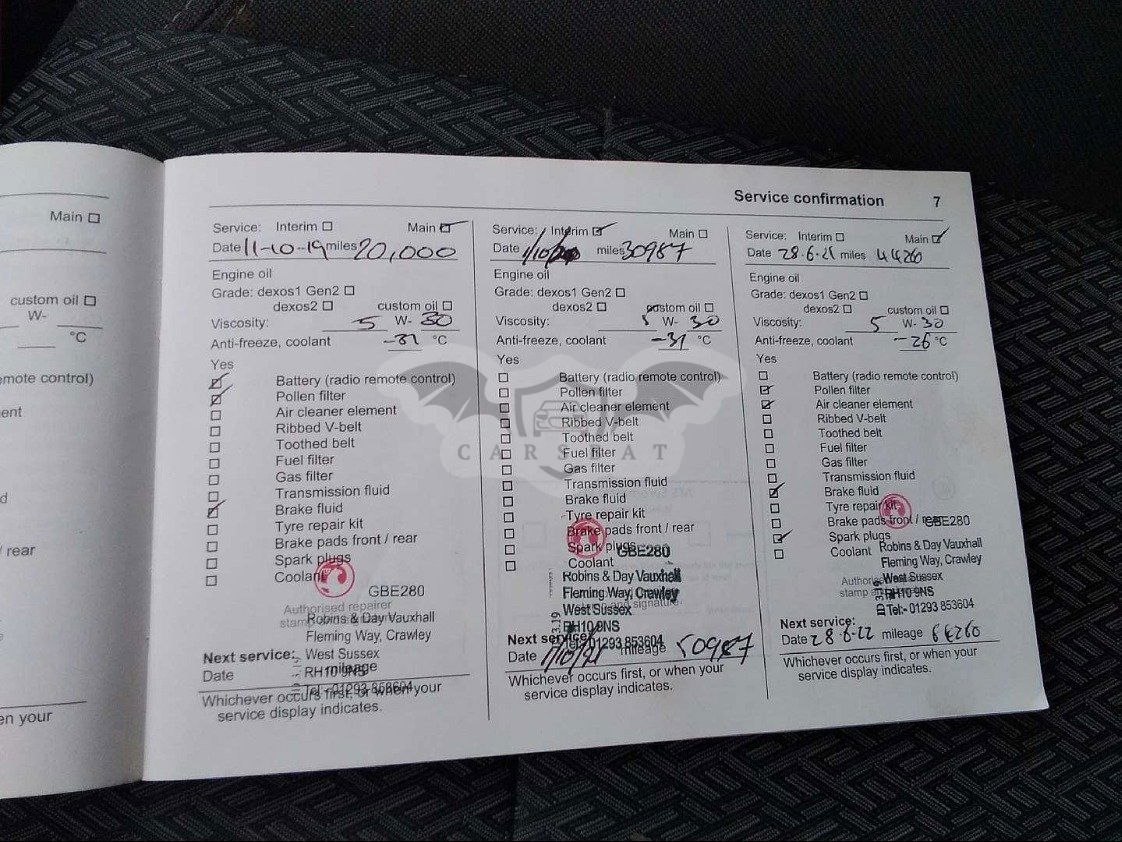 Main
custom oil
W-
°C
emote control)
ent
d
/ rear
en your
Service confirmation 7
Service: Interim Main
Date 11-10-19 miles 20,000
Engine oil
Grade: dexos1 Gen2
dexos2 custom oil
Viscosity: 5 W- 30
Anti-freeze, coolant -31 °C
Yes
Battery (radio remote control)
Pollen filter
Air cleaner element
Ribbed V-belt
Toothed belt
Fuel filter
Gas filter
Transmission fluid
Brake fluid
Tyre repair kit
Brake pads front / rear
Spark plugs
Coolant
GBE280
Authorised repairer
Robins & Day Vauxhall
Fleming Way, Crawley
West Sussex
RH10 9NS
Next service:
Date mileage
Whichever occurs first, or when your
service display indicates.
Service: Interim Main
Date 1/10/20 miles 30987
Engine oil
Grade: dexos1 Gen2
dexos2 custom oil
Viscosity: 5 W- 30
Anti-freeze, coolant -31 °C
Yes
Battery (radio remote control)
Pollen filter
Air cleaner element
Ribbed V-belt
Toothed belt
Fuel filter
Gas filter
Transmission fluid
Brake fluid
Tyre repair kit
Brake pads front / rear
Spark plugs
Coolant
GBE280
Robins & Day Vauxhall
Fleming Way, Crawley
West Sussex
RH10 9NS
Tel:- 01293 853604
Next service:
Date 1/10/21 mileage 50987
Whichever occurs first, or when your
service display indicates.
Service: Interim Main
Date 28.6.21 miles 44260
Engine oil
Grade: dexos1 Gen2
dexos2 custom oil
Viscosity: 5 W- 30
Anti-freeze, coolant -26 °C
Yes
Battery (radio remote control)
Pollen filter
Air cleaner element
Ribbed V-belt
Toothed belt
Fuel filter
Gas filter
Transmission fluid
Brake fluid
Tyre repair kit
Brake pads front / rear
Spark plugs
Coolant
GBE280
Robins & Day Vauxhall
Fleming Way, Crawley
West Sussex
RH10 9NS
Tel:- 01293 853604
Next service:
Date 28.6.22 mileage 64260
Whichever occurs first, or when your
service display indicates.
CARSBAT